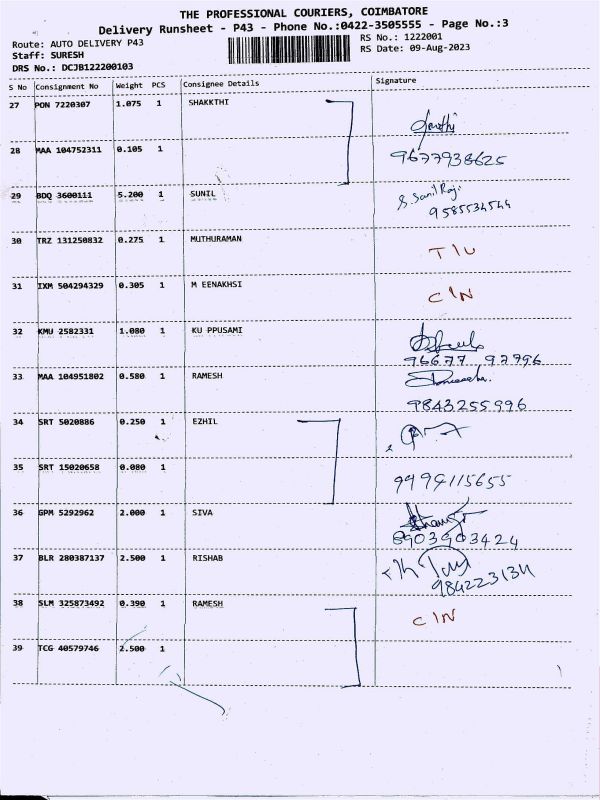 THE PROFESSIONAL COURIERS, COIMBATORE
Delivery Runsheet - P43 - Phone No.:0422-3505555 - Page No.:3
Route: AUTO DELIVERY P43
RS No.: 1222001
Staff: SURESH
RS Date: 09-Aug-2023
DRS No.: DCJB122200103
S No Consignment No Weight PCS Consignee Details Signature
27 PON 7220307 1.075 1 SHAKKTHI
28 MAA 104752311 0.105 1 9677938625
29 BDQ 3600111 5.200 1 SUNIL S. Sunil Raj
9585534544
30 TRZ 131250832 0.275 1 MUTHURAMAN T/U
31 IXM 504294329 0.305 1 M EENAKHSI C/N
32 KMU 2582331 1.080 1 KU PPUSAMI
96677 92796
33 MAA 104951802 0.580 1 RAMESH
9843255996
34 SRT 5020886 0.250 1 EZHIL
35 SRT 15020658 0.080 1 9494115655
36 GPM 5292962 2.000 1 SIVA
8903903424
37 BLR 280387137 2.500 1 RISHAB
38 SLM 325873492 0.390 1 RAMESH C/N
39 TCG 40579746 2.500 1